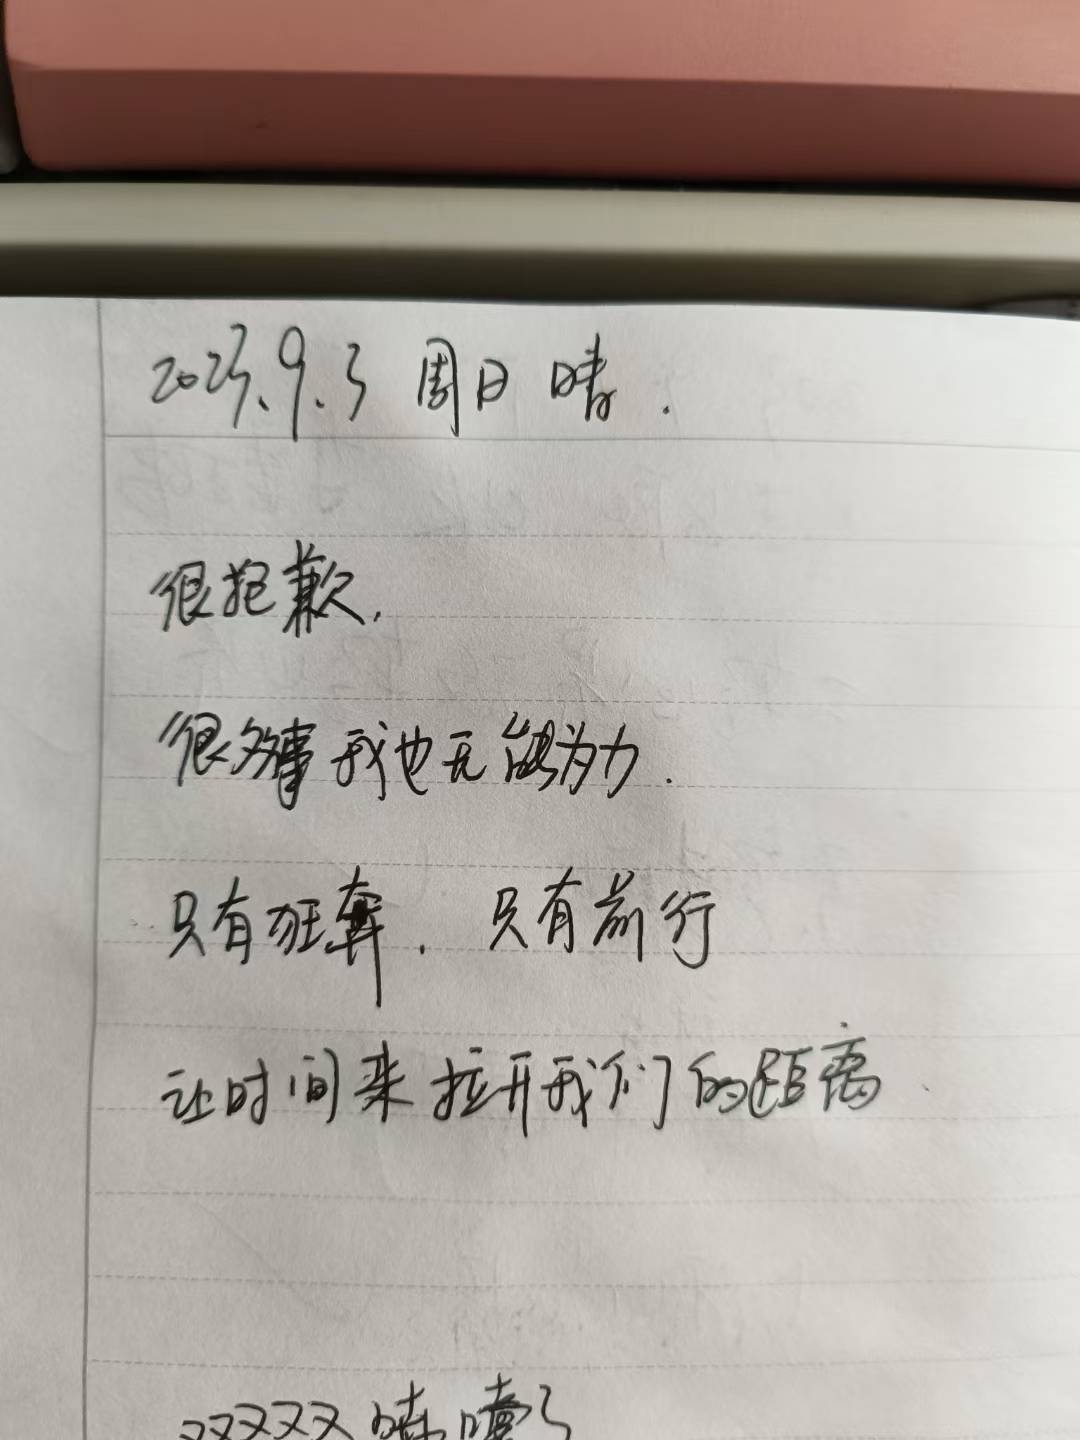 2023.9.3 周日 晴.
很抱歉,
很多事我也无能为力.
只有狂奔. 只有前行
让时间来拉开我们的距离
又又又又